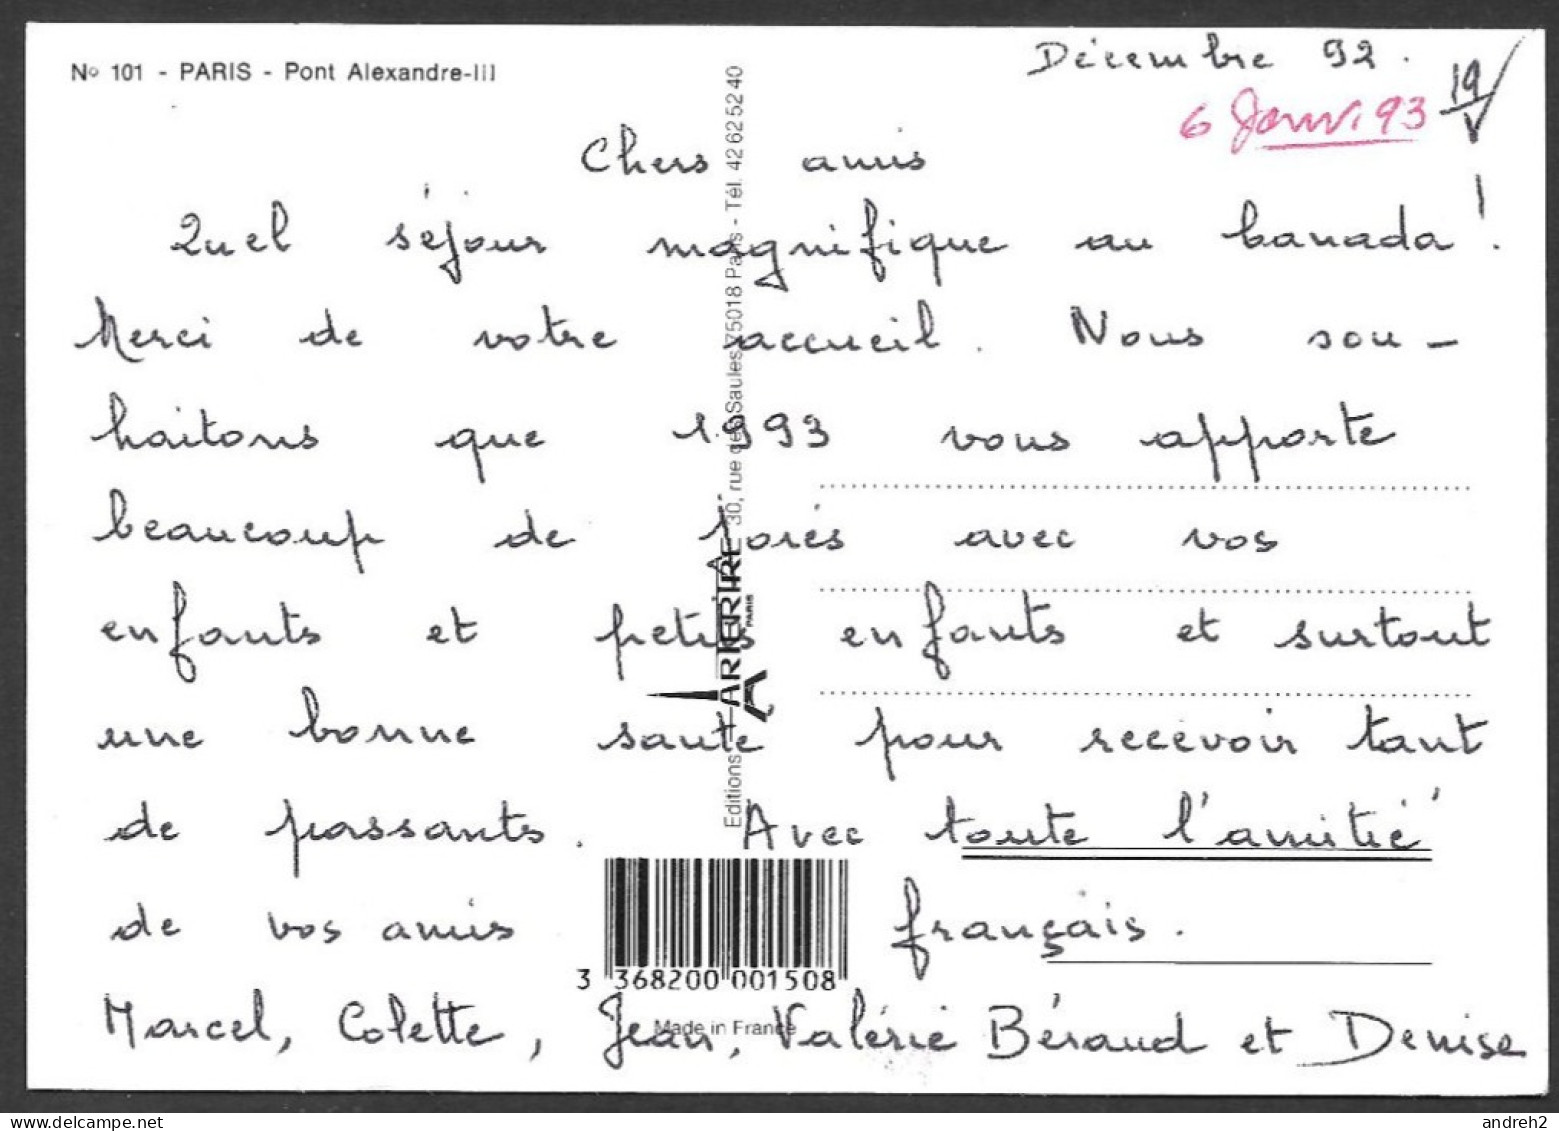 Nº 101 - PARIS - Pont Alexandre-III
Décembre 92.
6 Janv. 93
19/V
Chers amis
Quel séjour magnifique au Canada !
Merci de votre accueil. Nous sou-
haitons que 1993 vous apporte
beaucoup de joies avec vos
enfants et petits enfants et surtout
une bonne santé pour recevoir tant
de passants. Avec toute l'amitié
de vos amis français.
Marcel, Colette, Jean, Valérie Béraud et Denise
Editions - "ARTERTRE" 30, rue des Saules 75018 Paris - Tél. 42 62 52 40
PARIS
3 368200 001508
Made in France
andreh2